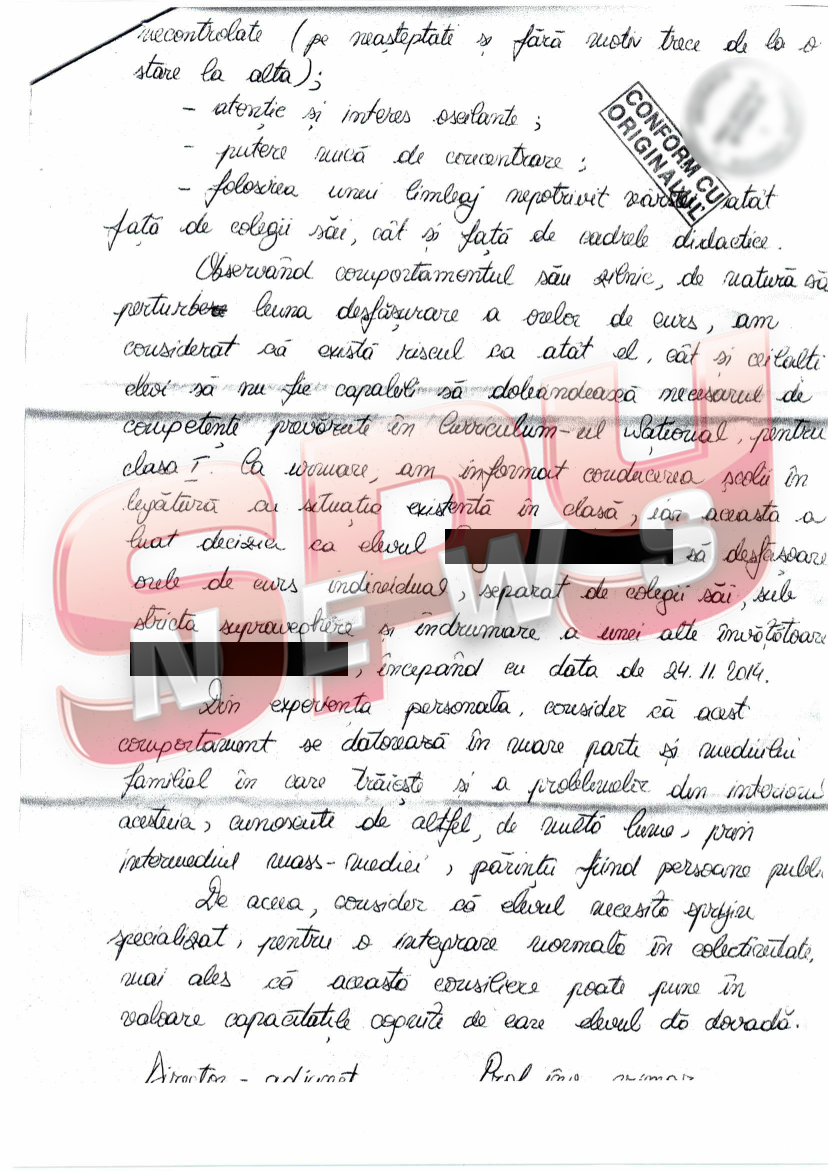 necontrolate (pe neașteptate și fără motiv trece de la o
stare la alta);
- atenție și interes oscilante;
- putere mică de concentrare;
- folosirea unui limbaj nepotrivit vârstei atât
față de colegii săi, cât și față de cadrele didactice.
CONFORM CU
ORIGINALUL
Observând comportamentul său zilnic, de natură să
perturbe buna desfășurare a orelor de curs, am
considerat că există riscul ca atât el, cât și ceilalți
elevi să nu fie capabili să dobândească necesarul de
competențe prevăzute în Curriculum-ul Național, pentru
clasa I. Ca urmare, am informat conducerea școlii în
legătură cu situația existentă în clasă, iar aceasta a
luat decizia ca elevul să desfășoare
orele de curs individual, separat de colegii săi, sub
stricta supraveghere și îndrumare a unei alte învățătoare
, începând cu data de 24.11.2014.
Din experiența personală, consider că acest
comportament se datorează în mare parte și mediului
familial în care trăiește și a problemelor din interiorul
acesteia, cunoscute de altfel, de multă lume, prin
intermediul mass-mediei, părinții fiind persoane publi
De aceea, consider că elevul necesită sprijin
specializat, pentru o integrare normală în colectivitate,
mai ales că această consiliere poate pune în
valoare capacitățile cognitive de care elevul dă dovadă.
Director-adjunct Prof. înv. primar
SPY
NEWS